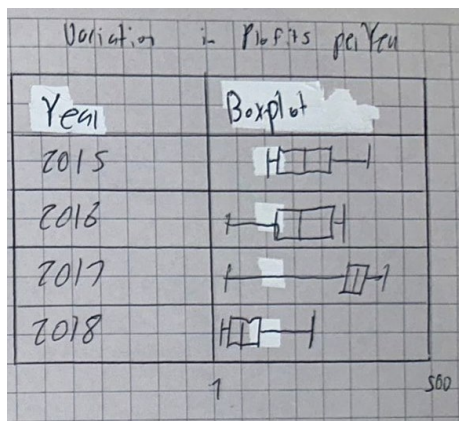 Variation in Profits per Year
Year Boxplot
2015
2016
2017
2018
1 500